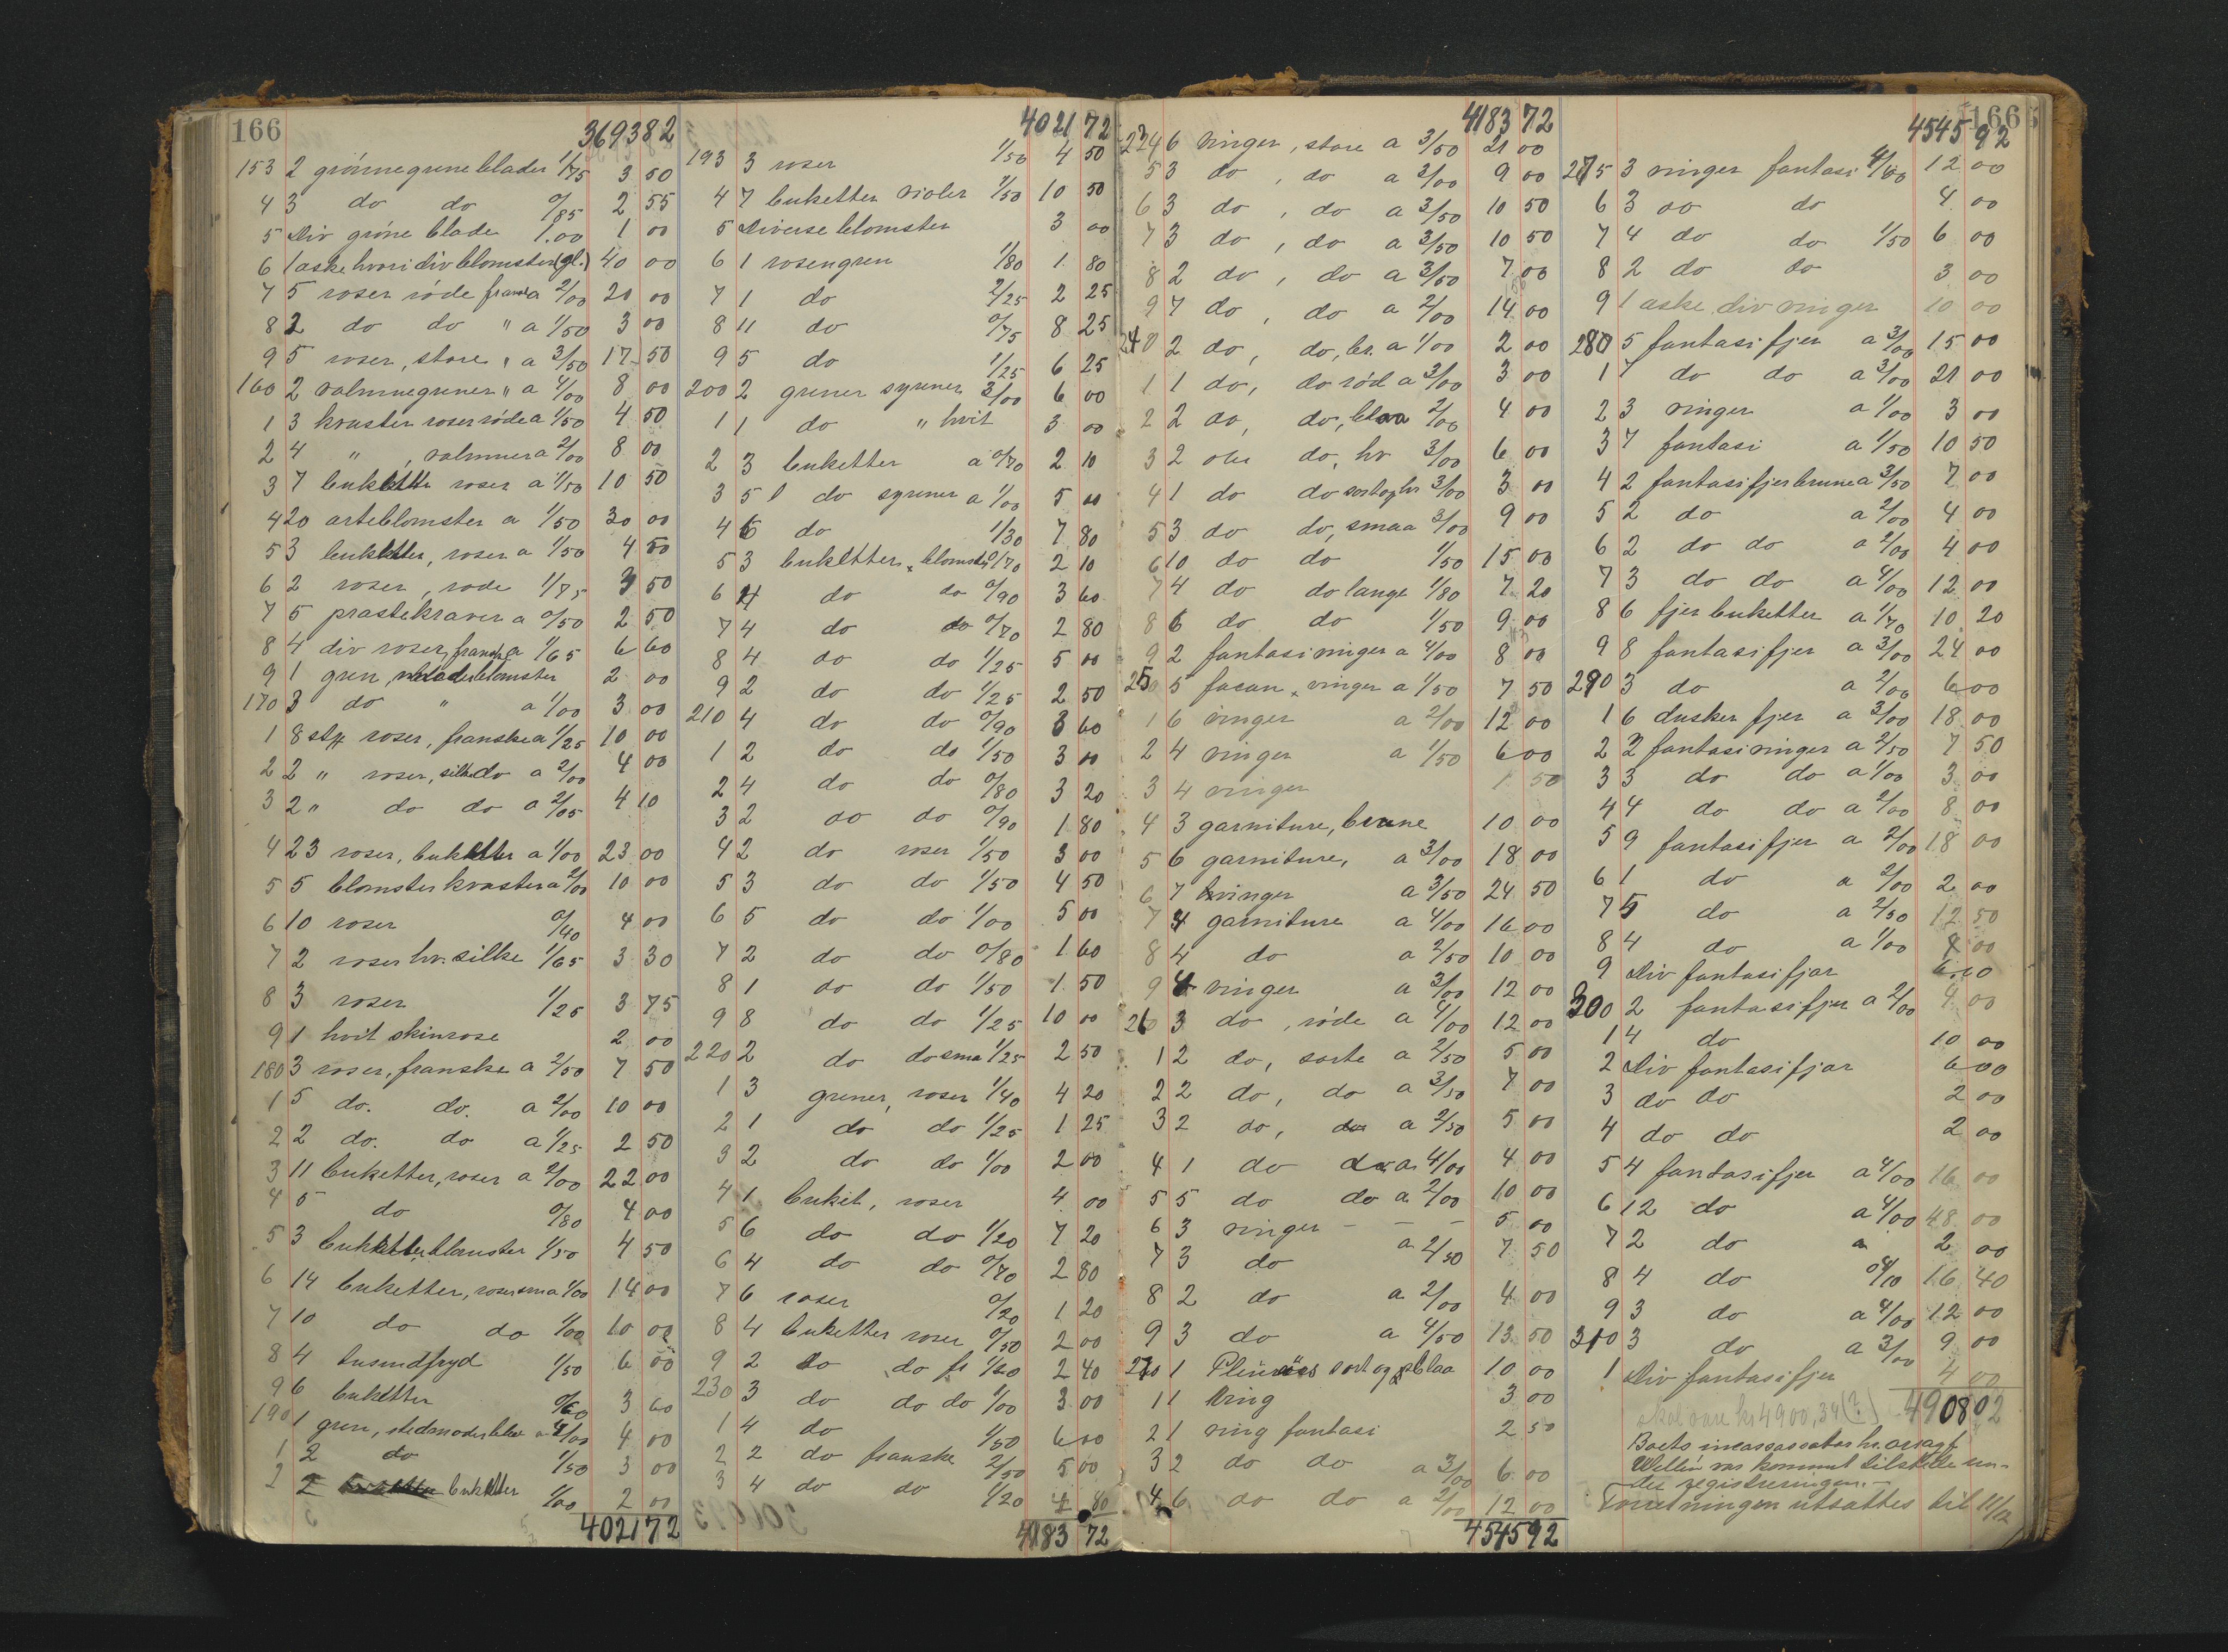 166
3693 82
153 2 grönne grene blader 1/75 3 50
4 3 do do 0/85 2 55
5 Div gröne blade 1.00 1 00
6 1 aske hvori div blomster (gl.) 40 00
7 5 roser röde franska 2/00 20 00
8 2 do do " a 1/50 3 00
9 5 roser, store " a 3/50 17 50
160 2 valmuegrener " a 4/00 8 00
1 3 kvaster roser röde a 1/50 4 50
2 4 " , valmuer a 2/00 8 00
3 7 buketter roser a 1/50 10 50
4 20 erteblomster a 1/50 30 00
5 3 buketter, roser a 1/50 4 50
6 2 roser, røde 1/75 3 50
7 5 prestekraver a 0/50 2 50
8 4 div roser, franske a 1/65 6 60
9 1 gren, blomster 2 00
170 3 do " a 1/00 3 00
1 8 stk roser, franske a 1/25 10 00
2 2 " roser, silke do a 2/00 4 00
3 2 " do do a 2/05 4 10
4 23 roser, buketter a 1/00 23 00
5 5 blomster kvaster a 2/00 10 00
6 10 roser 0/40 4 00
7 2 roser hv. silke 1/65 3 30
8 3 roser 1/25 3 75
9 1 hvit skinrose 2 00
180 3 roser, franske a 2/50 7 50
1 5 do. do. a 2/00 10 00
2 2 do. do a 1/25 2 50
3 11 buketter, roser a 2/00 22 00
4 5 do 0/80 4 00
5 3 buketter blomster 1/50 4 50
6 14 buketter, roser sma 1/00 14 00
7 10 do do 1/00 10 00
8 4 tusindfryd 1/50 6 00
9 6 buketter 0/60 3 60
190 1 gren, stedmoderblom a 4/00 4 00
1 2 do 1/50 3 00
2 2 buketter 1/00 2 00
4021 72
4021 72
193 3 roser 1/50 4 50
4 7 buketter violer 1/50 10 50
5 Diverse blomster 3 00
6 1 rosengren 1/80 1 80
7 1 do 2/25 2 25
8 11 do 0/75 8 25
9 5 do 1/25 6 25
200 2 grener syrener 3/00 6 00
1 1 do " hvit 3 00
2 3 buketter a 0/70 2 10
3 5 do syrener a 1/00 5 00
4 6 do 1/30 7 80
5 3 buketter, blomster 0/70 2 10
6 4 do do 0/90 3 60
7 4 do do 0/70 2 80
8 4 do do 1/25 5 00
9 2 do do 1/25 2 50
210 4 do do 0/90 3 60
1 2 do do 1/50 3 00
2 4 do do 0/80 3 20
3 2 do do 0/90 1 80
4 2 do roser 1/50 3 00
5 3 do do 1/50 4 50
6 5 do do 1/00 5 00
7 2 do do 0/80 1 60
8 1 do do 1/50 1 50
9 8 do do 1/25 10 00
220 2 do do sma 1/25 2 50
1 3 grener, roser 1/40 4 20
2 1 do do 1/25 1 25
3 2 do do 1/00 2 00
4 1 buket, roser 4 00
5 6 do do 1/20 7 20
6 4 do do 0/70 2 80
7 6 roser 0/20 1 20
8 4 buketter roser 0/50 2 00
9 2 do do fr 1/20 2 40
230 3 do do do 1/00 3 00
1 4 do 1/50 6 00
2 2 do franske 2/50 5 00
3 4 do do 1/20 4 80
4183 72
4183 72
234 6 vinger, store a 3/50 21 00
5 3 do , do a 3/00 9 00
6 3 do , do a 3/50 10 50
7 3 do , do a 3/50 10 50
8 2 do , do a 3/50 7 00
9 7 do , do a 2/00 14 00
240 2 do, do, br. a 1/00 2 00
1 1 do, do röd a 3/00 3 00
2 2 do, do, blaa 2/00 4 00
3 2 do do, hv 3/00 6 00
4 1 do do sort og hv 3/00 3 00
5 3 do do, smaa 3/00 9 00
6 10 do do 1/50 15 00
7 4 do do lange 1/80 7 20
8 6 do do 1/50 9 00
9 2 fantasivinger a 4/00 8 00
250 5 facan vinger a 1/50 7 50
1 6 vinger a 2/00 12 00
2 4 vinger a 1/50 6 00
3 4 vinger 1 50
4 3 garniture, brune 10 00
5 6 garniture, a 3/00 18 00
6 7 vinger a 3/50 24 50
7 4 garniture a 4/00 16 00
8 4 do a 2/50 10 00
9 4 vinger a 3/00 12 00
260 3 do, röde a 4/00 12 00
1 2 do, sorte a 2/50 5 00
2 2 do, do a 3/50 7 00
3 2 do, do a 2/50 5 00
4 1 do do a 4/00 4 00
5 5 do do a 2/00 10 00
6 3 vinger - - - 5 00
7 3 do a 2/50 7 50
8 2 do a 2/00 4 00
9 3 do a 4/50 13 50
270 1 sort og blaa 10 00
1 1 Ving 3 00
2 1 ving fantasi 2 50
3 2 do do a 3/00 6 00
4 6 do do a 2/00 12 00
4545 92
166
4545 92
275 3 vinger fantasi 4/00 12 00
6 3 do do 4 00
7 4 do do 1/50 6 00
8 2 do do 3 00
9 1 aske div vinger 10 00
280 5 fantasifjer a 3/00 15 00
1 7 do do a 3/00 21 00
2 3 vinger a 1/00 3 00
3 7 fantasi a 1/50 10 50
4 2 fantasifjer brune a 3/50 7 00
5 2 do a 2/00 4 00
6 2 do do a 2/00 4 00
7 3 do do a 4/00 12 00
8 6 fjer buketter a 1/70 10 20
9 8 fantasifjer a 3/00 24 00
290 3 do a 2/00 6 00
1 6 dusker fjer a 3/00 18 00
2 2 fantasivinger a 2/50 7 50
3 3 do do a 1/00 3 00
4 4 do do a 2/00 8 00
5 9 fantasifjer a 2/00 18 00
6 1 do a 2/00 2 00
7 5 do a 2/50 12 50
8 4 do a 1/00 4 00
9 Div fantasifjær 6.60
300 2 fantasifjer a 2/00 4 00
1 4 do 10 00
2 Div fantasifjær 6 00
3 do do 2 00
4 do do 2 00
5 4 fantasifjer a 4/00 16 00
6 12 do a 4/00 48 00
7 2 do a 2 00
8 4 do 16 40
9 3 do a 4/00 12 00
310 3 do a 3/00 9 00
1 Div fantasifjer 4 00
skal være kr 4900,34 (?) 4908 02
Boets incassator hr. orsagf
Wellén var kommet tilstede un-
der registreringen.-
Forretningen utsattes til 11/12